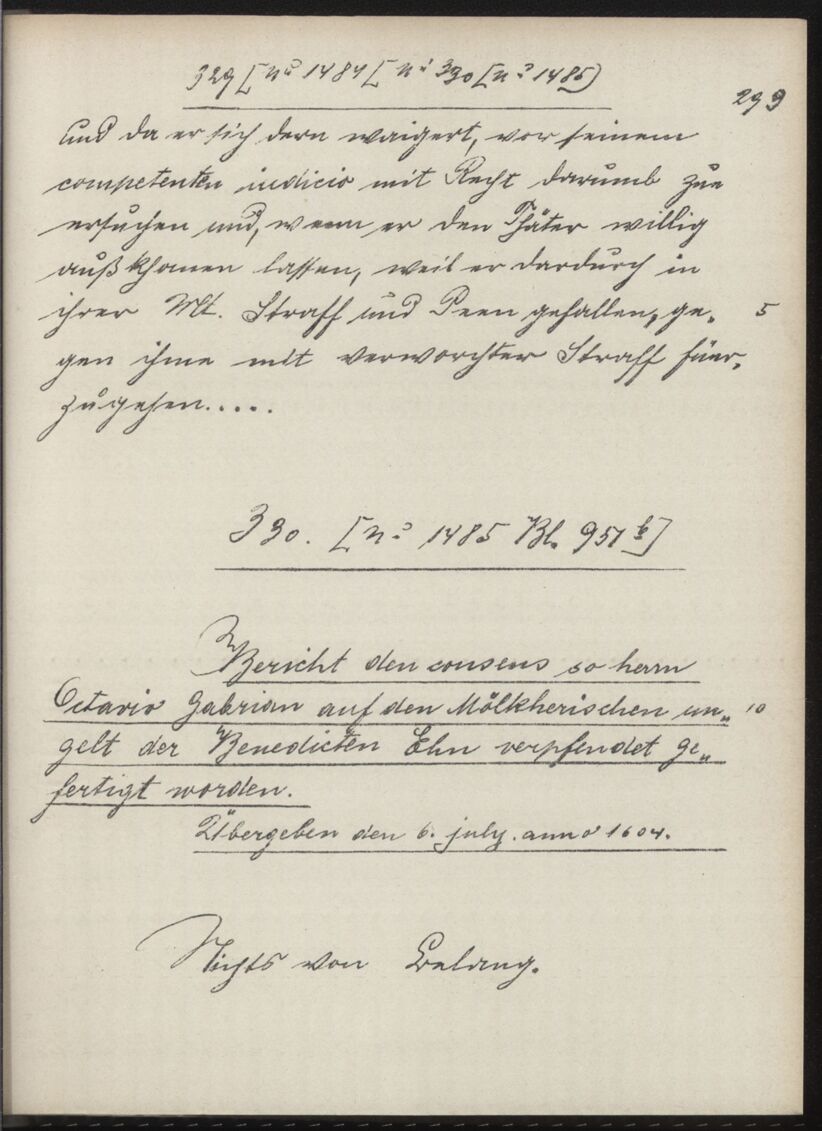 329 [nº 1484 [nº 330 [nº 1485]
299
und da er sich dern waigert, vor seinem
competenten iudicio mit Recht darumb zue
ersuchen und, wenn er den Thäter willig
außkhomen lassen, weil er dardurch in
ihrer Mt. Straff und Peen gefallen, ge- 5
gen ihme mit verworchter Straff fuer-
zugehen.....
330. [nº 1485 Bl. 951 b]
Bericht den consens so herrn
Octavio Gabrian auf den Mölkherischen un„ 10
gelt der Benedicten Ehn verpfendet ge„
fertigt worden.
Übergeben den 6. july. anno 1604.
Nichts von Belang.